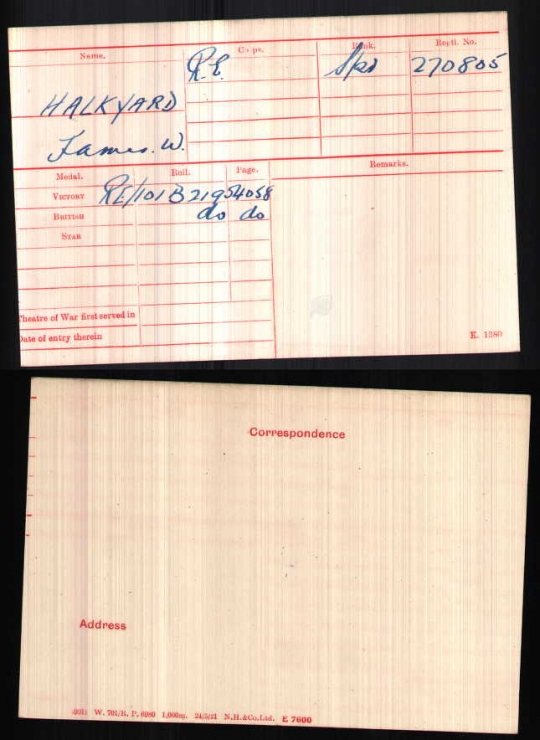 Name. Corps. Rank. Regtl. No.
R.E. Spr 270805
HALKYARD
James. W.
Medal. Roll. Page. Remarks.
VICTORY RE/101 B 219 54058
BRITISH do do
STAR
Theatre of War first served in
Date of entry therein
K. 1380
Correspondence
Address
W. 701/R. P. 6980 1,000m. 24/5/21 N.H.&Co.Ltd. E 7600